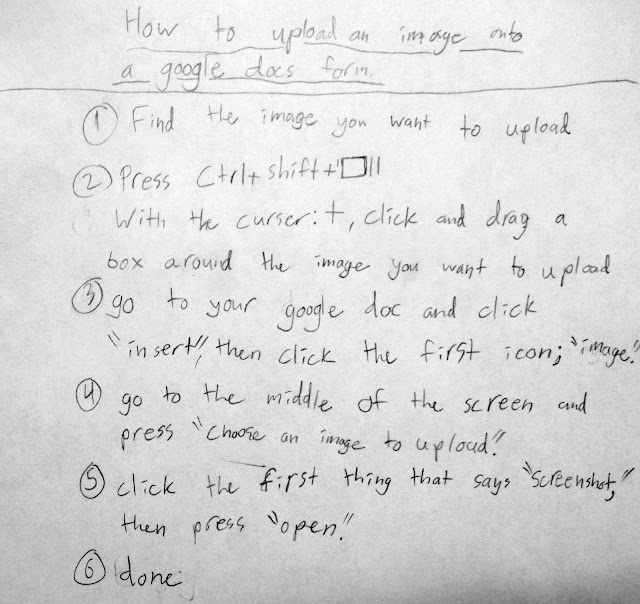 How to upload an image onto
a google docs form.
① Find the image you want to upload
② Press Ctrl+shift+□||
With the curser: +, click and drag a
box around the image you want to upload
③ go to your google doc and click
"insert", then click the first icon; "image."
④ go to the middle of the screen and
press "choose an image to upload."
⑤ click the first thing that says "screenshot,"
then press "open."
⑥ done